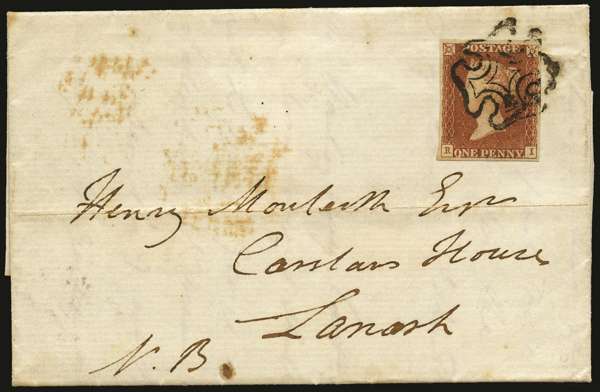 POSTAGE
R I
ONE PENNY
Henry Monteith Esqr
Carstairs House
Lanark
N. B